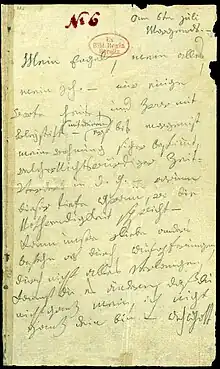 No 6
am 6ten juli
Morgends. –
Ex
Bibl. Regia
Mein Engel, mein alles,
mein Ich. – nur einige
Worte heute, und zwar mit
Bleystift (mit deinem) – erst bis morgen ist
meine Wohnung sicher bestimmt,
welcher Nichtswürdiger Zeit-
verderb in d.g. – warum
dieser tiefe Gram, wo die
Nothwendigkeit spricht –
Kann unsre Liebe anders
bestehn als durch Aufopferungen,
durch nicht alles verlangen,
kannst du es ändern, daß du
nicht ganz mein, ich nicht
ganz dein bin – Ach Gott